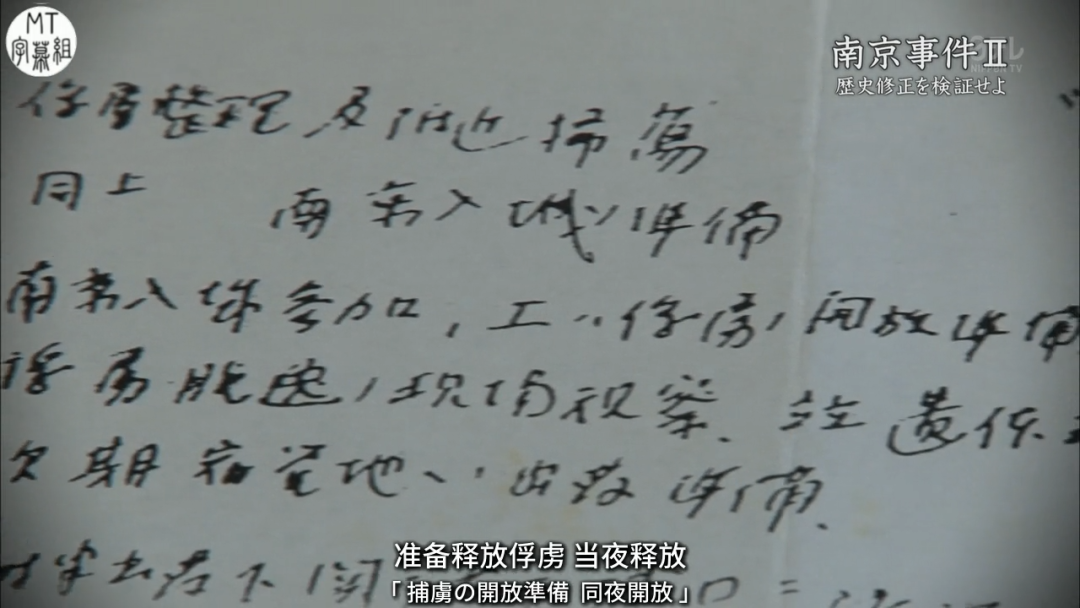 MT
字幕組
南京事件Ⅱ
NIPPON TV
歴史修正を検証せよ
俘虜整理及附近掃蕩
同上 南京入城準備
南京入城参加、工ハ俘虜ノ開放準備
俘虜脱逸ノ現場視察、並遺体
次期宿営地ヘノ出発準備、
准备释放俘虏 当夜释放
「捕虜の開放準備 同夜開放」